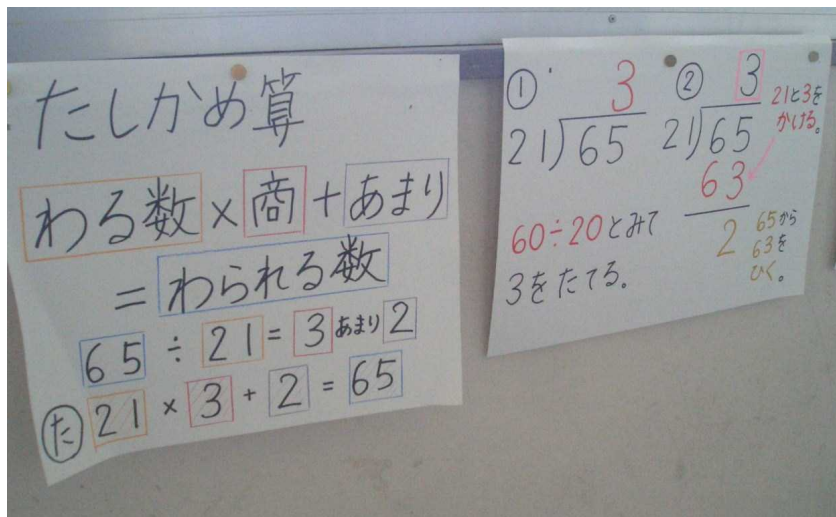 たしかめ算
わる数×商+あまり
=わられる数
65÷21=3あまり2
た 21×3+2=65
① 3
21)65
60÷20とみて
3をたてる。
② 3
21)65
63
2
21と3を
かける。
65から
63を
ひく。